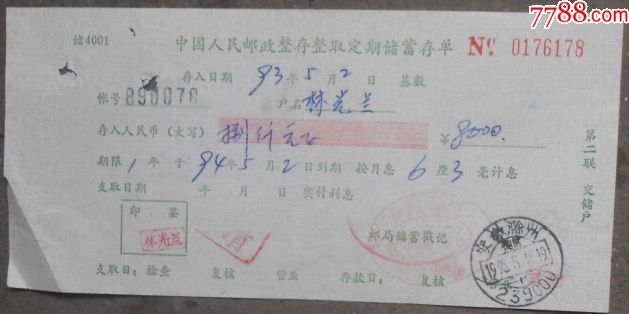 7788.com
储4001 中国人民邮政整存整取定期储蓄存单 No 0176178
存入日期 93年5月2日 基数
帐号 890078 户名 林光兰
存入人民币(大写) 捌仟元 ¥8000.
期限1年于94年5月2日到期 按月息6厘3毫计息
支取日期 年 月 日 实付利息
第二联 交储户
印鉴 林光兰
邮局储蓄戳记
支取日: 检查 复核 营业 存款日: 复核
安徽滁州
239000